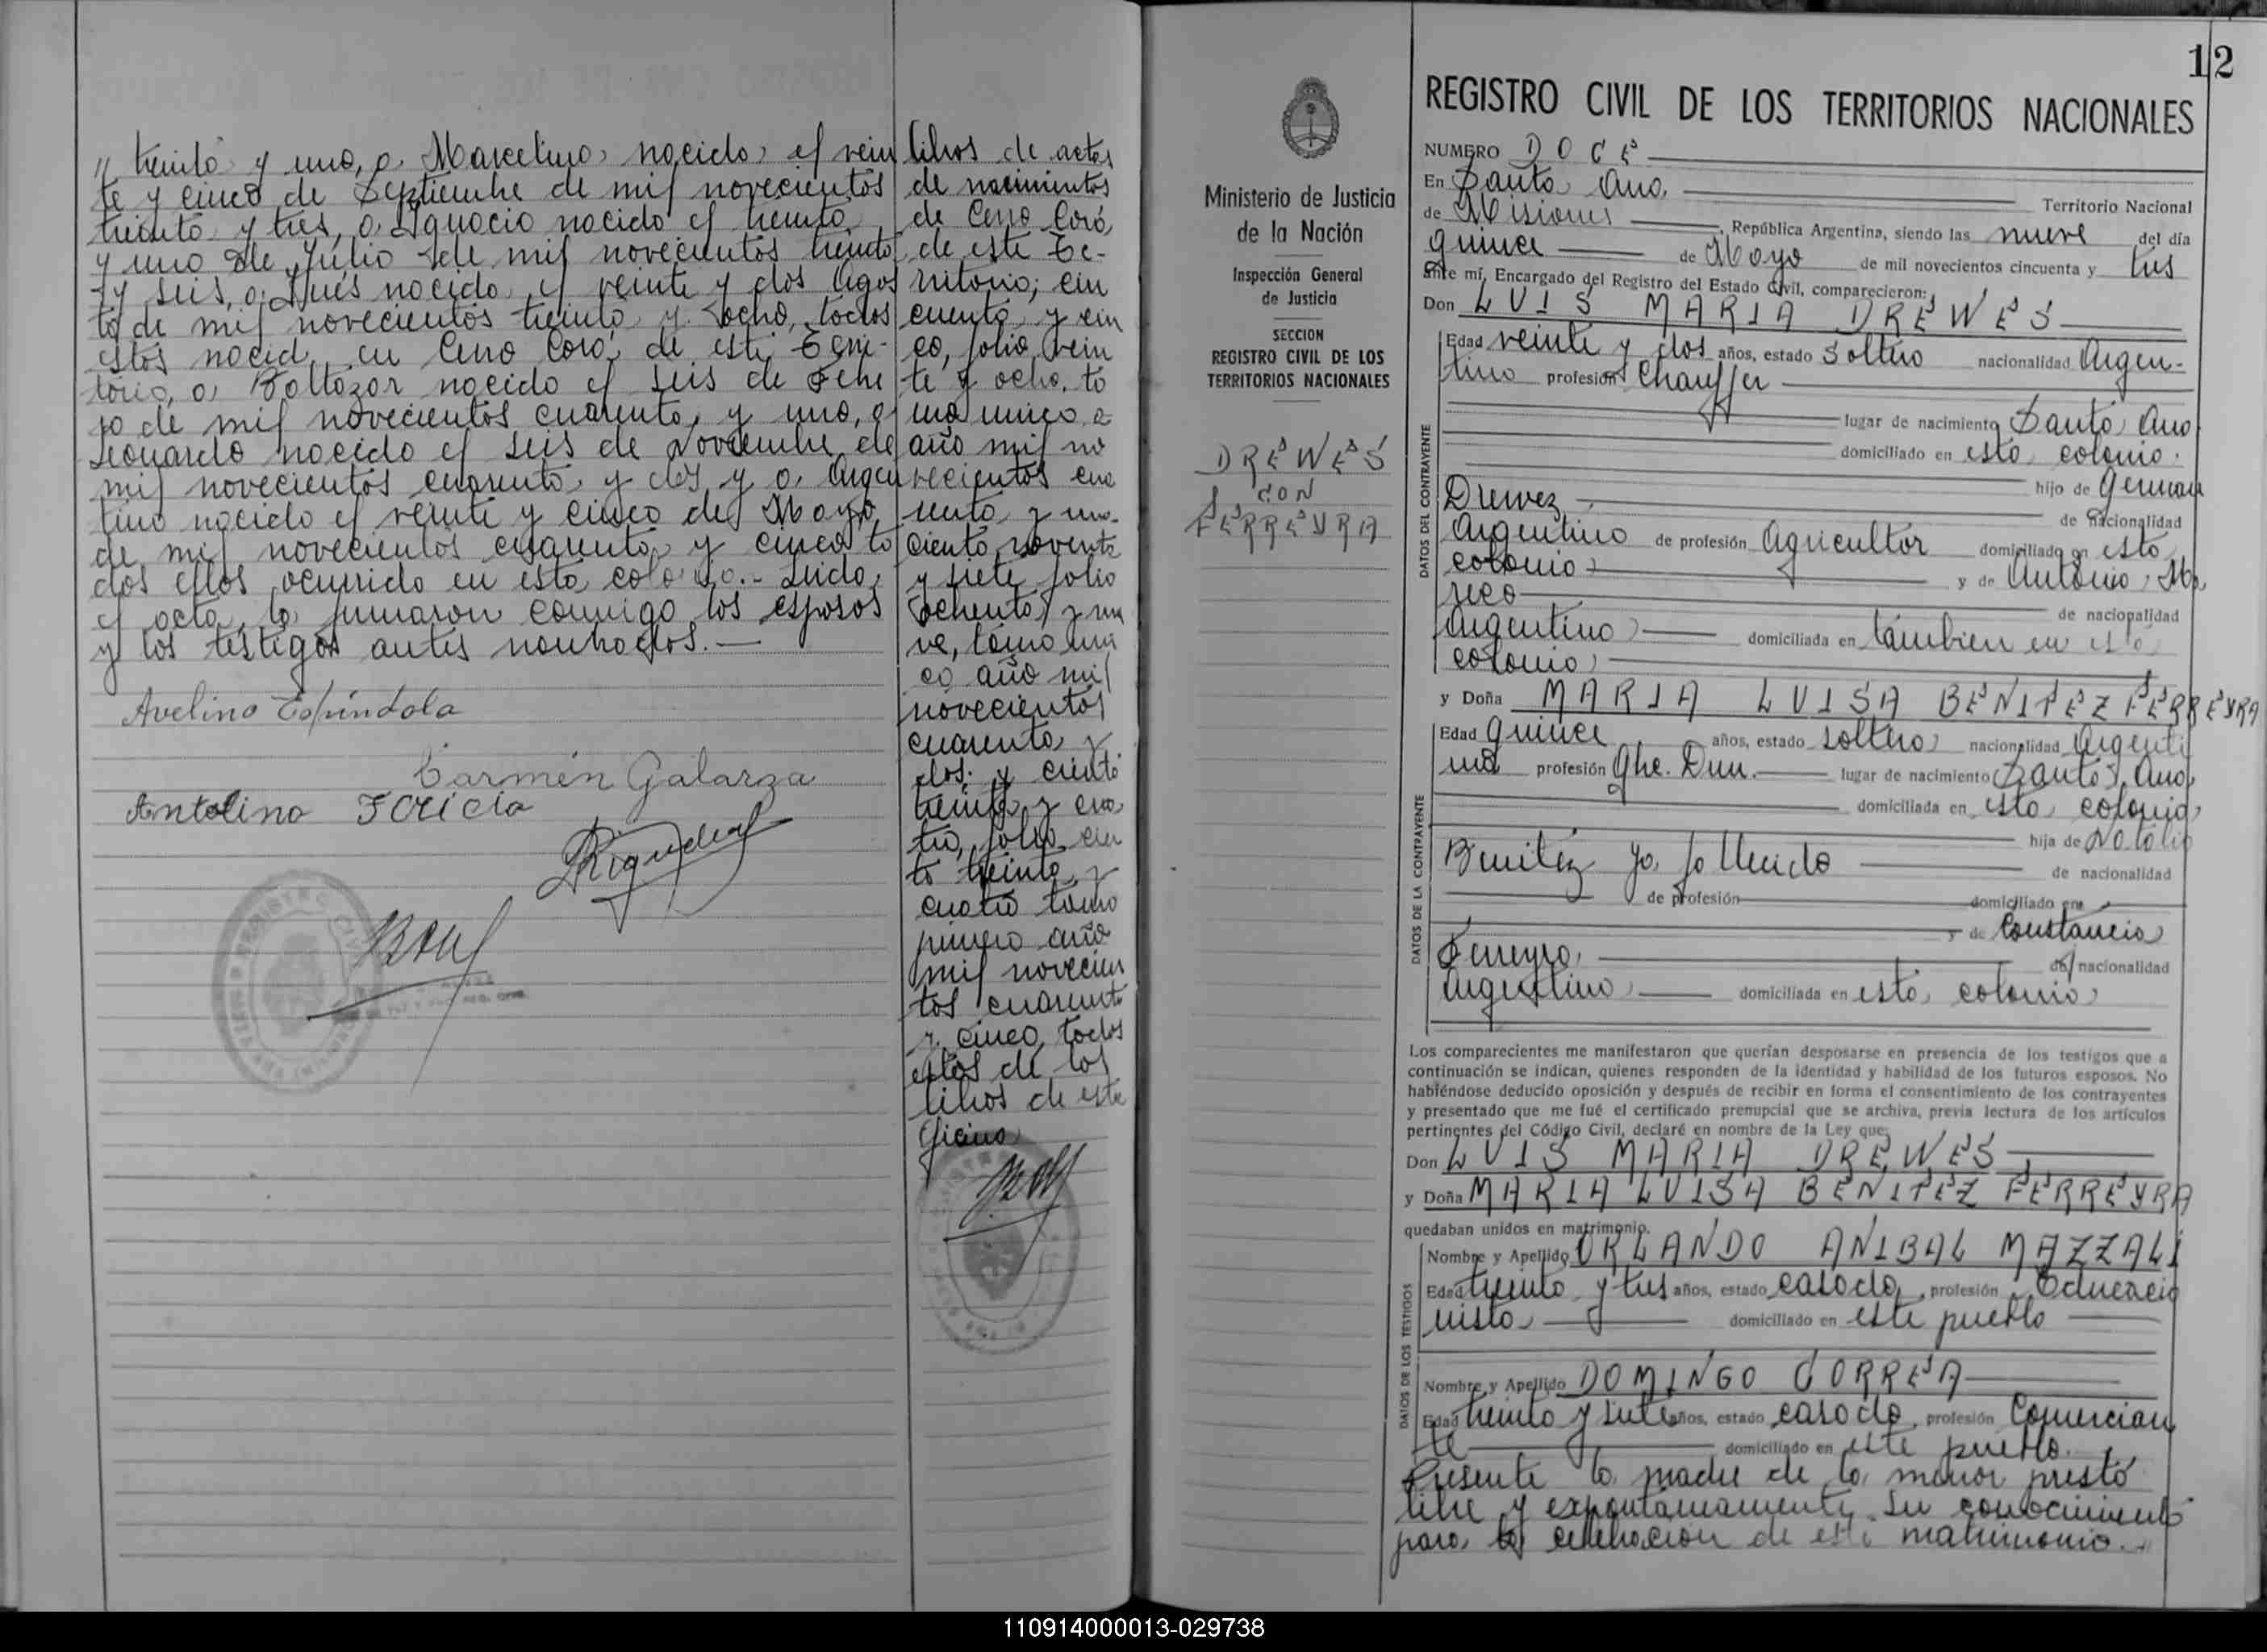 treinta y uno, a Marcelino, nacido, el vein
te y cinco de Septiembre de mil novecientos
treinta y tres, a Ignacio nacido el treinta
y uno de Julio de mil novecientos treinta
y seis, a Inés nacido el veinte y dos Agos
to de mil novecientos treinta y ocho, todos
estos nacid en Cerro Corá, de este Terri-
torio, a Baltazar nacido el seis de Ene
ro de mil novecientos cuarenta y uno, a
Leonardo nacido el seis de Noviembre de
mil novecientos cuarenta y dos y a Argen
tino nacido el veinte y cinco de Mayo
de mil novecientos cuarenta y cinco to
dos ellos ocurrido en esta colonia.- Leida,
el acta, la firmaron conmigo los esposos
y los testigos antes nombrados.
Avelino Espíndola
Carmén Galarza
Antolino
libros de actas
de nacimientos
de Cerro Corá,
de este Te-
rritorio; cin
cuenta y cin
co, folio vein
te y ocho, to
mo unico,
año mil no
vecientos cua
renta y uno.
Ciento noventa
y siete folio
ochenta y nue
ve, tomo uni
co, año mil
novecientos
cuarenta y
dos. y ciento
treinta y cua
tro, folio cien
to treinta y
cuatro tomo
primero año
mil novecien
tos cuarenta
y cinco, todos
estos de los
libros de esta
oficina
Ministerio de Justicia
de la Nación
Inspección General
de Justicia
SECCION
REGISTRO CIVIL DE LOS
TERRITORIOS NACIONALES
DREWES
CON
FERREYRA
12
REGISTRO CIVIL DE LOS TERRITORIOS NACIONALES
NUMERO DOCE
En Santa Ana, Territorio Nacional
de Misiones, República Argentina, siendo las nueve del día
quince de Mayo de mil novecientos cincuenta y tres
ante mí, Encargado del Registro del Estado Civil, comparecieron:
Don LUIS MARIA DREWES
DATOS DEL CONTRAYENTE
Edad veinte y dos años, estado soltero nacionalidad Argen-
tino profesión Chauffer
lugar de nacimiento Santa Ana
domiciliado en esta colonia.
hijo de German
Drewez, de nacionalidad
Argentino de profesión Agricultor domiciliado en esta
colonia y de Antonia
de nacionalidad
Argentina domiciliada en tambien en esta
colonia
y Doña MARIA LUISA BENITEZ FERREYRA
DATOS DE LA CONTRAYENTE
Edad quince años, estado soltera nacionalidad Argenti
na profesión Qhe. Dom. lugar de nacimiento Santa Ana
domiciliada en esta colonia,
hija de Natalio
Benitez ya fallecido de nacionalidad
de profesión domiciliado en
y de Constancia
Ferreyra, de nacionalidad
Argentina, domiciliada en esta colonia
Los comparecientes me manifestaron que querían desposarse en presencia de los testigos que a
continuación se indican, quienes responden de la identidad y habilidad de los futuros esposos. No
habiéndose deducido oposición y después de recibir en forma el consentimiento de los contrayentes
y presentado que me fué el certificado prenupcial que se archiva, previa lectura de los artículos
pertinentes del Código Civil, declaré en nombre de la Ley que:
Don LUIS MARIA DREWES
y Doña MARIA LUISA BENITEZ FERREYRA
quedaban unidos en matrimonio.
DATOS DE LOS TESTIGOS
Nombre y Apellido ORLANDO ANIBAL MAZZALI
Edad treinta y tres años, estado casado, profesión Educacio
nista domiciliado en este pueblo
Nombre y Apellido DOMINGO CORREA
Edad treinta y siete años, estado casado, profesión Comercian
te domiciliado en este pueblo.
Presente la madre de la menor prestó
libre y expontaneamente su conocimiento
para la celebración de este matrimonio.
110914000013-029738